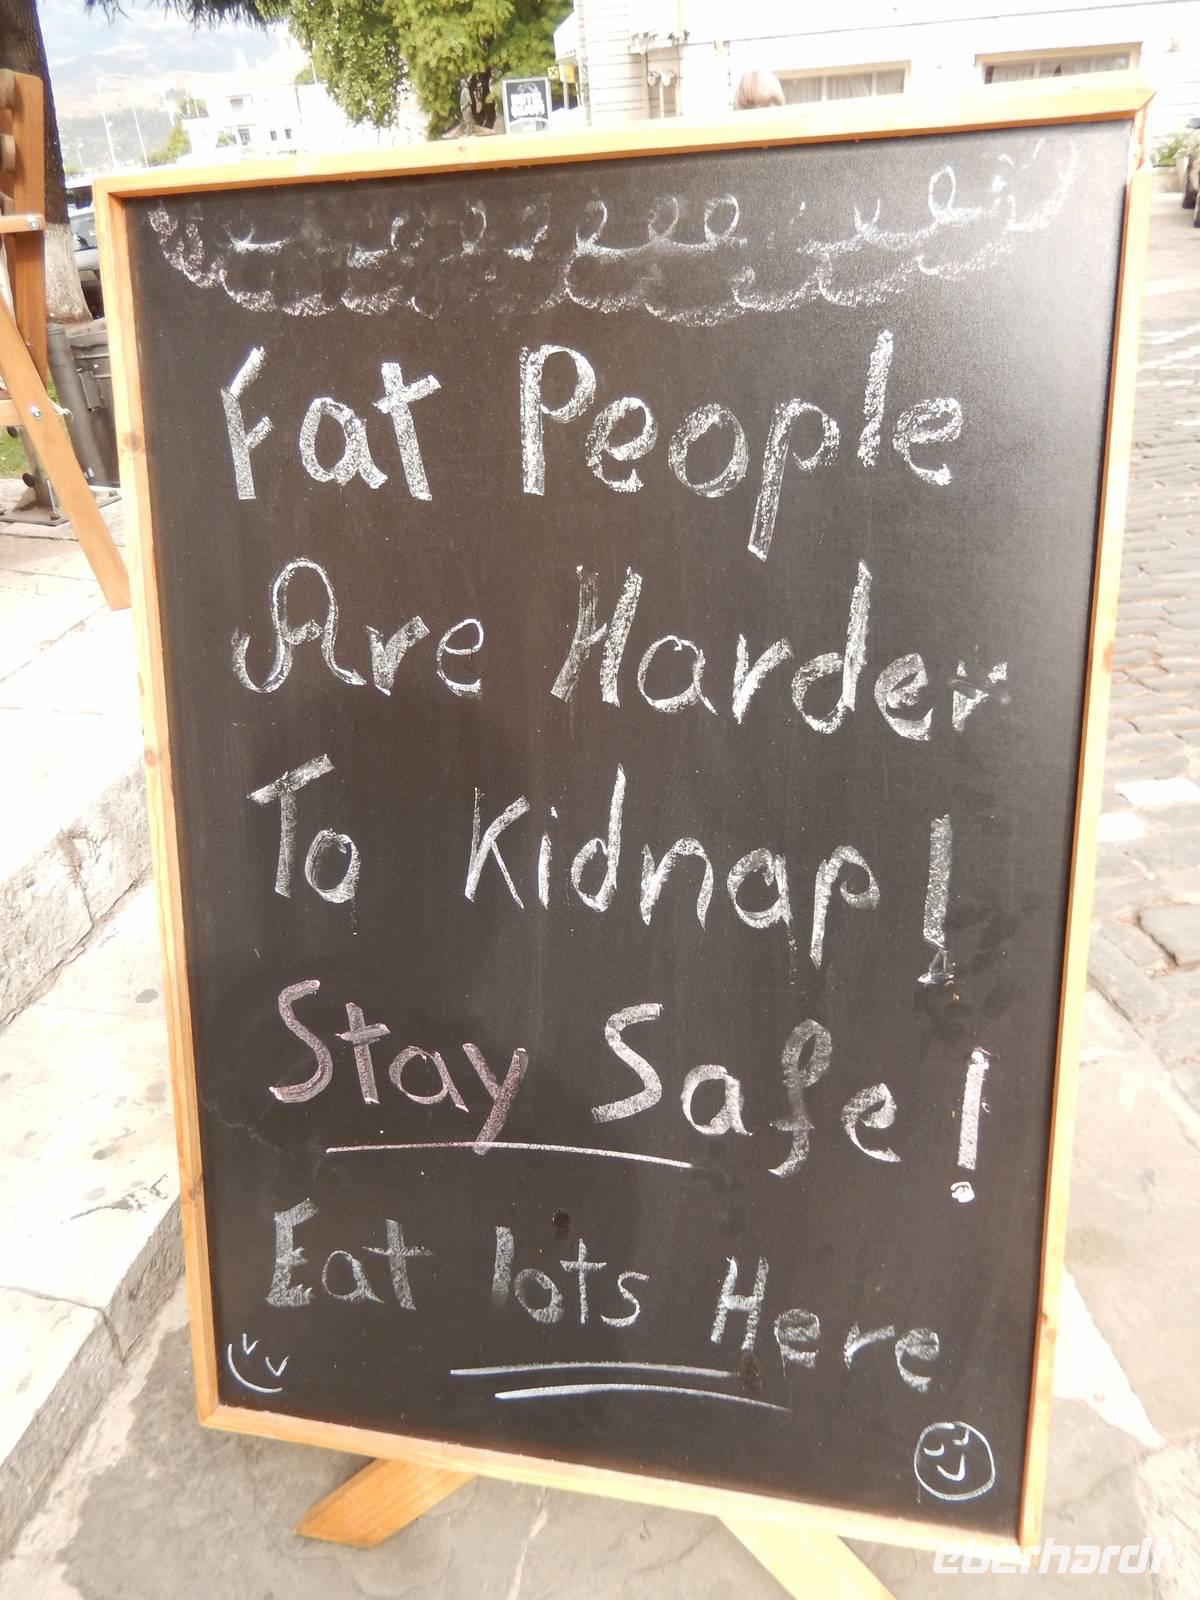 Fat People
Are Harder
To Kidnap!
Stay Safe!
Eat lots Here
eberhardt